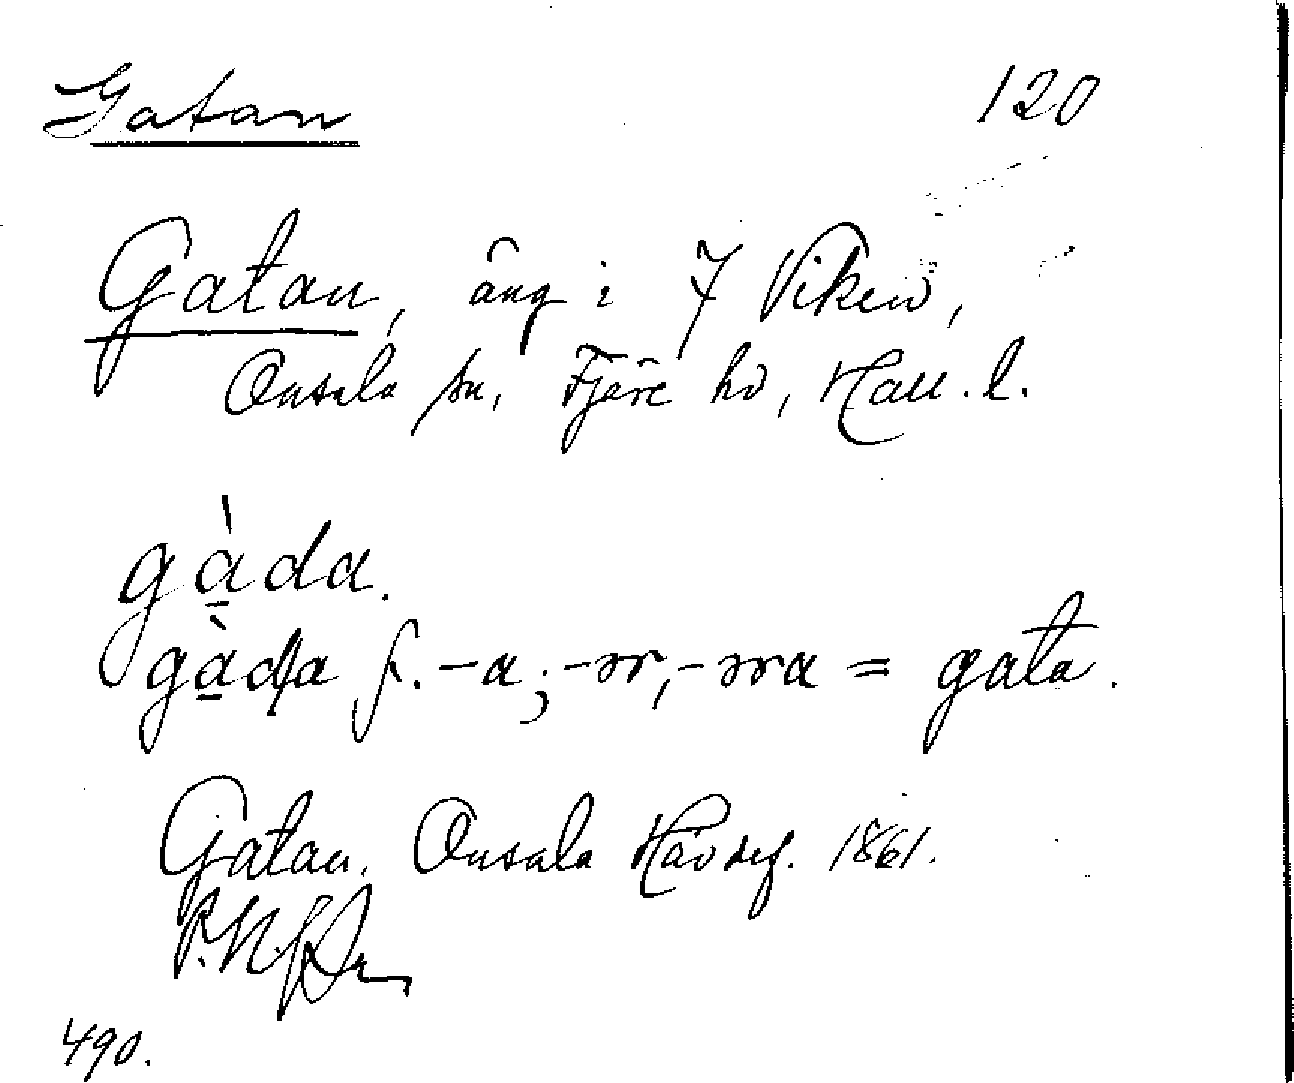 Gatan 120
Gatan, äng i 7 Viken,
Onsala sn, Fjäre hd, Hall. l.
gàda.
gàda f. -a; -ər, -əra = gata.
Gatan. Onsala Hävdef. 1861.
490.